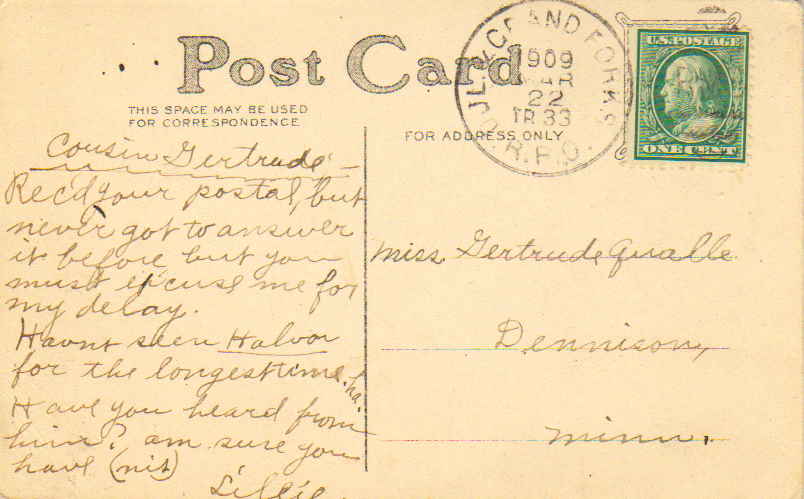 Post Card
THIS SPACE MAY BE USED
FOR CORRESPONDENCE
FOR ADDRESS ONLY
GRAND FORKS
1909
MAR
22
TR 33
R.P.O.
U.S. POSTAGE
ONE CENT
Cousin Gertrude -
Rec'd your postal, but
never got to answer
it before but you
must excuse me for
my delay.
Havnt seen Halvor
for the longest time. ha.
Have you heard from
him? am sure you
have (nit)
Lillie.
Miss Gertrude Qualle
Dennison,
Minn.